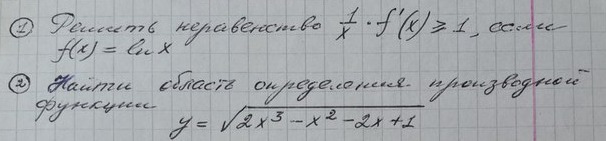 ① Решить неравенство 1/x · f'(x) ⩾ 1, если
f(x) = ln x
② Найти область определения производной
функции
y = √(2x³ − x² − 2x + 1)